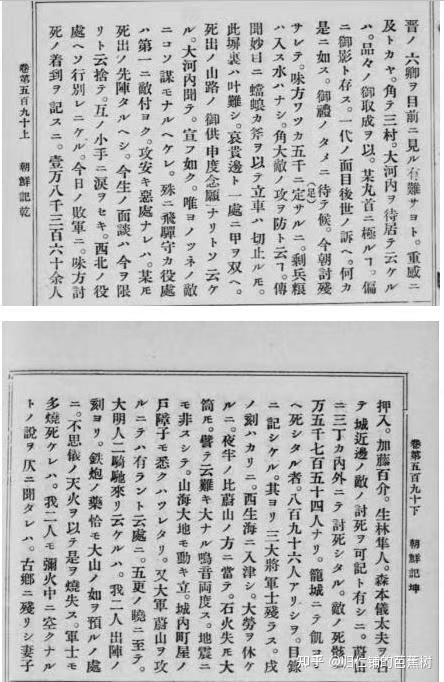 晋ノ六卿ヲ目前ニ見ル有難サヨト。重感ニ
及トカヤ。角テ三村。大河内ヲ待居テ云ケル
ハ。品々ノ御取成ヲ以。某丸首ニ極ルヿ。偏
ニ御影ト存ス。一代ノ面目後世ノ訴ヘ。何カ
是ニ如ス。御禮ノタメニ待テ候。今朝討殘
サレテ。味方ワツカ五千ニ定サルニ。剩兵粮
(足)
ハ入ス水ハナシ。角大敵ノ攻ヲ防ト云ヿ。傳
聞妙曰ニ蟷螂カ斧ヲ以テ立車ハ切止ルモ。
此塀裏ハ叶難シ。哀貴邊ト一處ニ甲ヲ双ヘ。
死出ノ山路ノ御供申度念願ナリトソ云ケ
ル。大河内聞テ。宣フ如ク。唯ヨノツネノ敵
ニコソ謀モナルヘケレ。殊ニ飛驒守カ役處
ハ第一ニ敵付ヨク。攻安キ惡處ナレハ。某モ
死出ノ先陣タルヘシ。今生ノ面談ハ今ヲ限
リト云捨テ。互ノ小手ニ涙ヲセキ。西北ノ役
處ヘソ行別レニケル。今日ノ敗軍ニ。味方討
死ノ着到ヲ記スニ。壹万八千三百六十余人
卷第五百九十上　朝鮮記乾
卷第五百九十下　朝鮮記坤
押入。加藤百介。生林隼人。森本儀太夫ヲ召
テ城近邊ノ敵ノ討死ヲ可記ト有シニ。蔚山
ニ三丁カ内外ニテ討死シタル。敵ノ死骸一
万五千七百五十四人ナリ。籠城ニテ飢コヾ
ヘ死シタル者。八百九十六人アリシヲ。目錄
ニ記シケル。其ヨリ三大將軍士殘ラス。戌
ノ刻ハカリニ。西生海ニ入津シ。大勞ヲ休ケ
ルニ。夜半ノ比蔚山ノ方ニ當テ。石火失モ大
筒モ。譬テ云難キ大ナル鳴音両度ス。地震ニ
モ非スシテ。山海大地モ動キ立。城内町屋ノ
戸障子モ悉クハツレタリ。又大軍蔚山ヲ攻
ルニテハ有ラント云處ニ。五更ノ曉ニ至テ。
大明人二騎馳來リ云ケルハ。我二人出陣ノ
刻ヨリ。鉄炮ノ藥恰モ大山ノ如ヲ預ル處
ニ。不思儀ノ天火ヲ以テ是ヲ燒失ス。軍士モ
多燒死ケレハ。我二人モ彌火中ニ空クナル
トノ說ヲ仄ニ聞タレハ。古鄉ニ殘リシ妻子
知乎 @归仁铺的芭蕉树